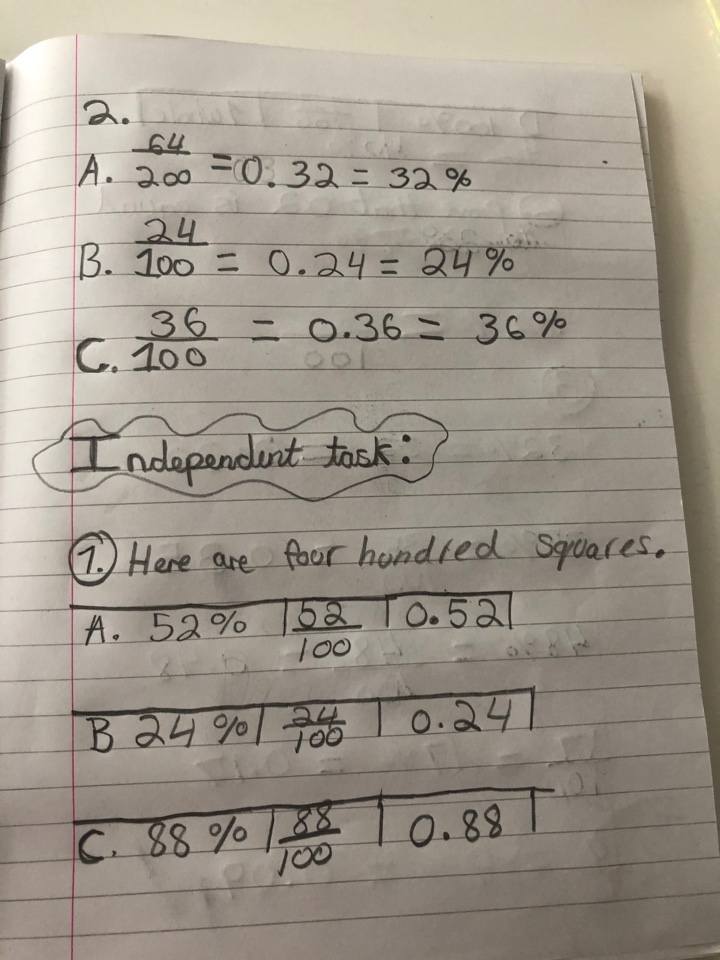 2.
A. 64/200 = 0.32 = 32%
B. 24/100 = 0.24 = 24%
C. 36/100 = 0.36 = 36%
Independent task:
1. Here are four hundred squares.
A. 52% | 52/100 | 0.52 |
B 24% | 24/100 | 0.24 |
C. 88% | 88/100 | 0.88 |